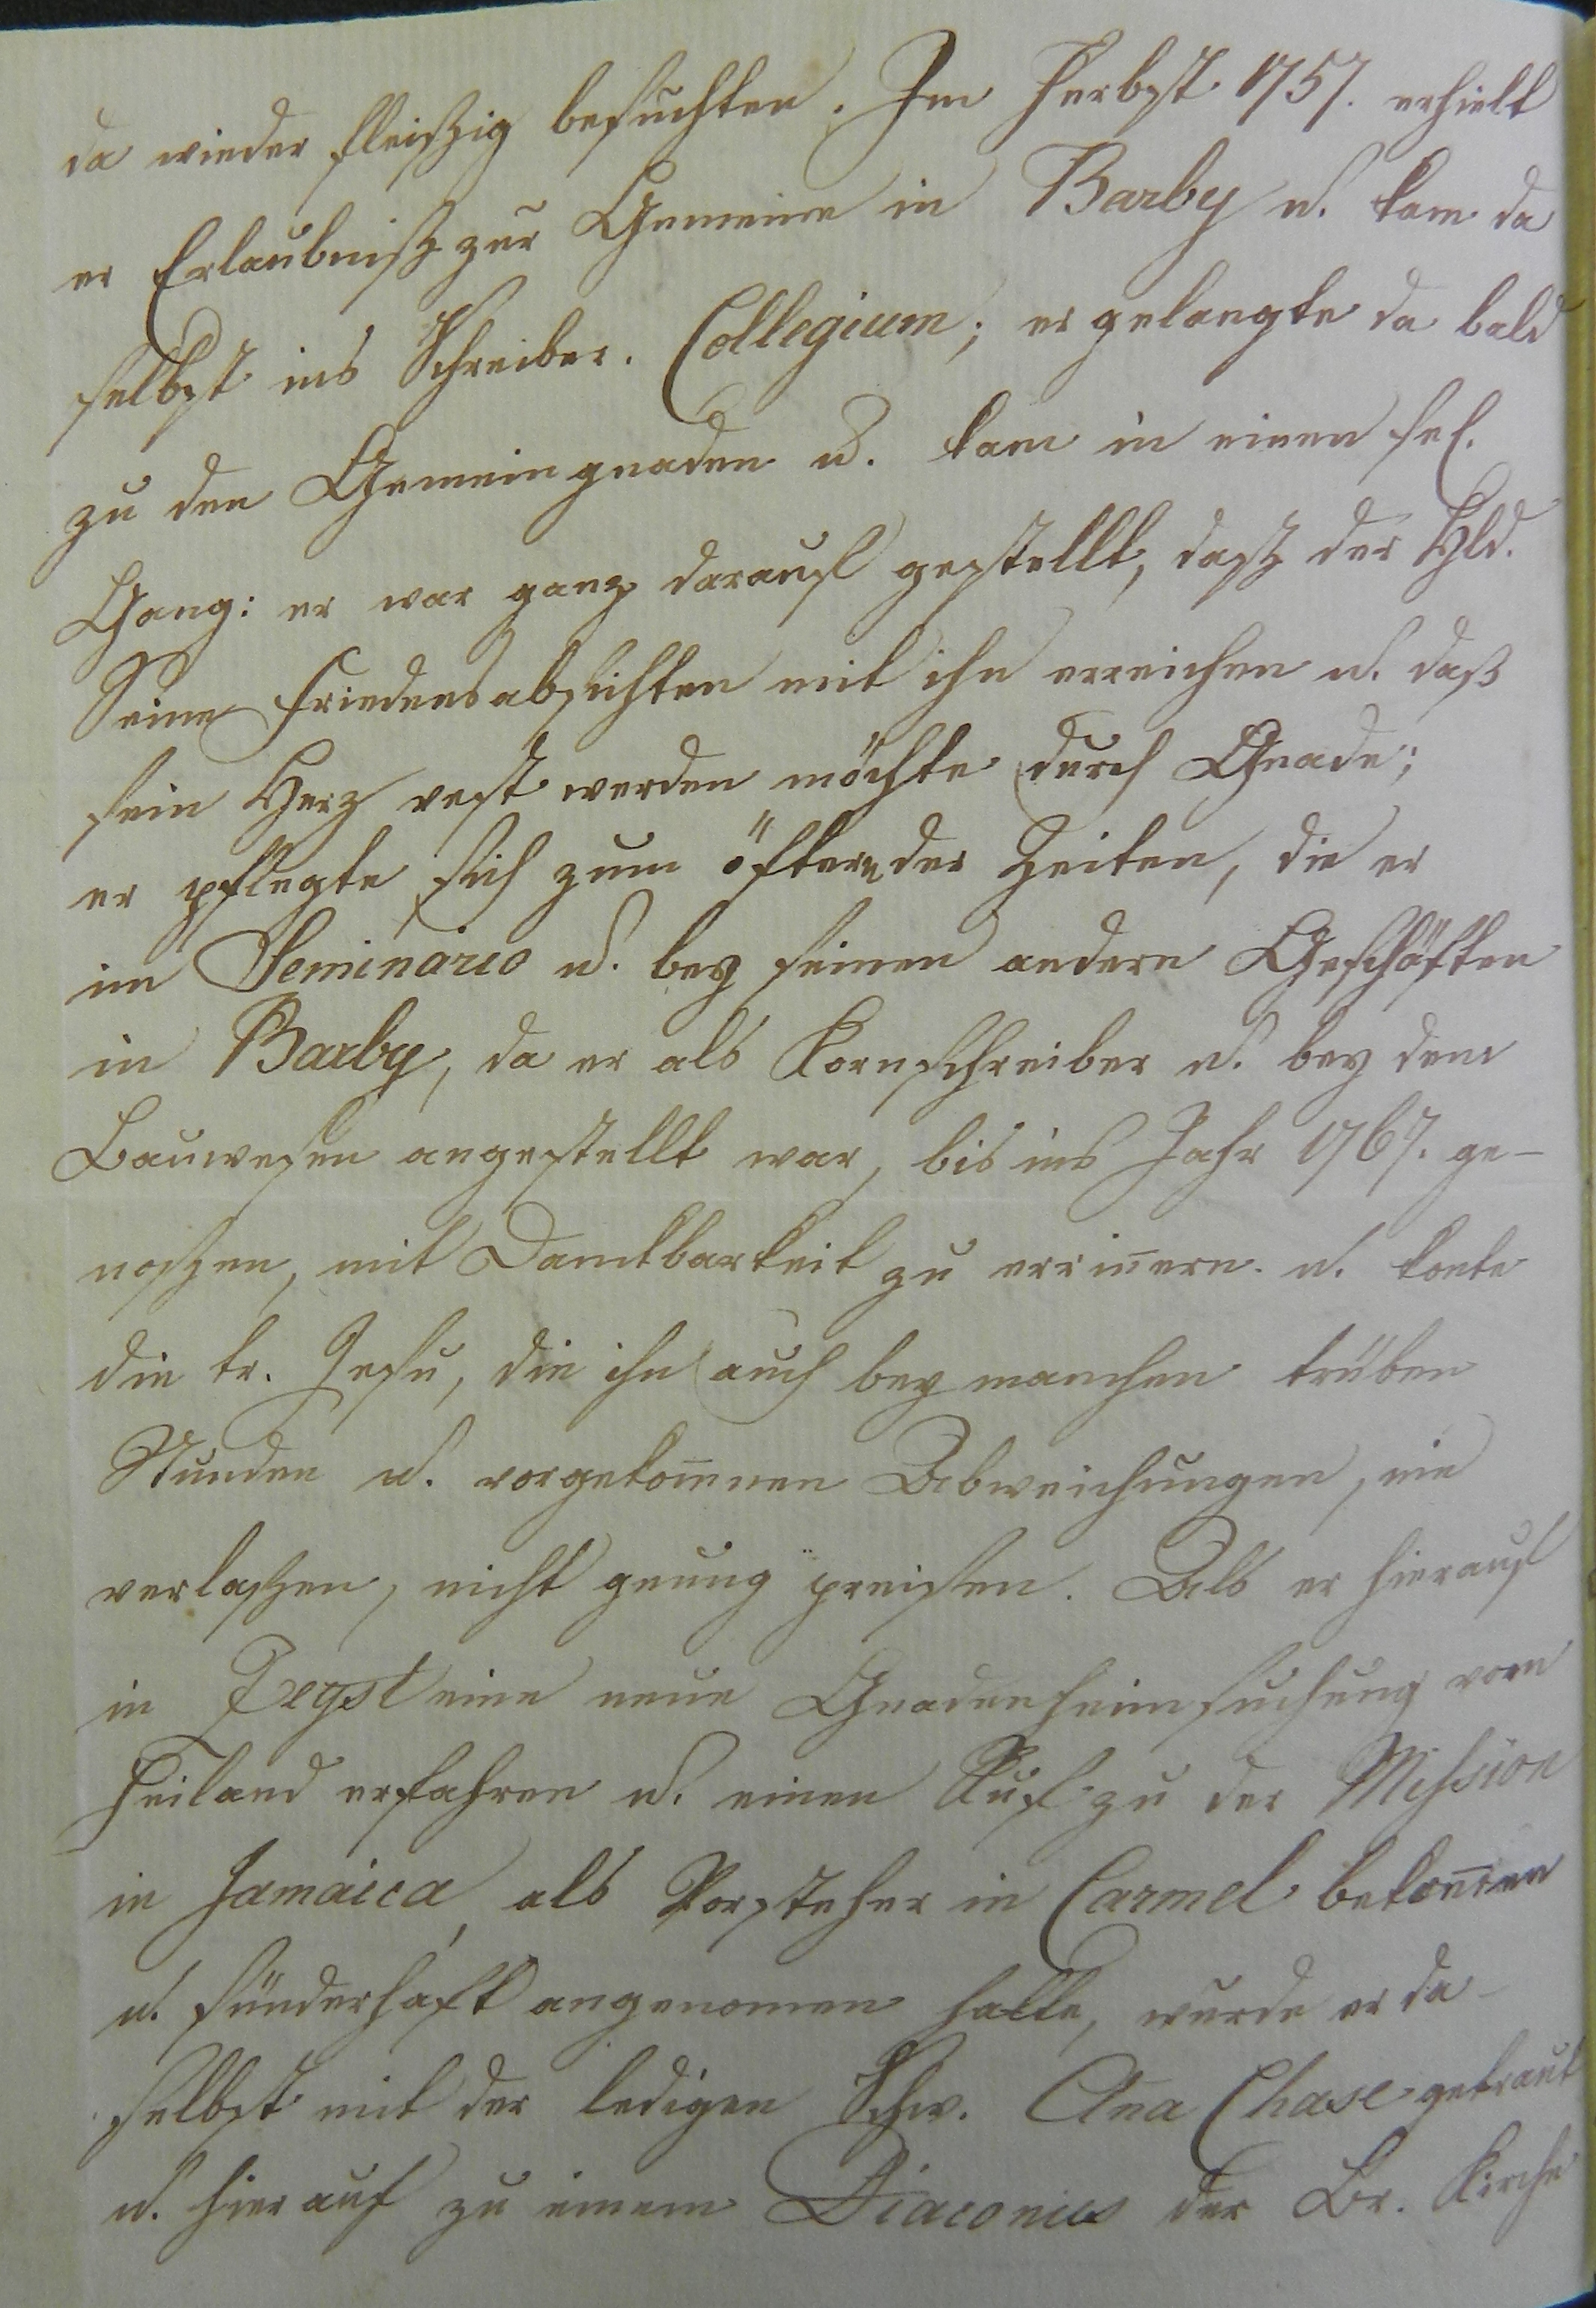 da wieder fleiszig besuchten. Im Herbst 1757. erhielt
er Erlaubnisz zur Gemeine in Barby u. kam da
selbst ins Schreiber. Collegium; er gelangte da bald
zu den Gemeingnaden u. kam in einen sel.
Gang: er war ganz darauf gestellt, dasz der Hld.
Seine Friedensabsichten mit ihm erreichen u. daß
sein Herz vest werden möchte durch Gnade;
er pflegte sich zum öftern der Zeiten, die er
im Seminario u. bey seinen andern Geschäften
in Barby, da er als Kornschreiber u. bey dem
Bauwesen angestellt war, bis ins Jahr 1767. ge-
noszen, mit Danckbarkeit zu erriñern. u. konte
die tr. Jesu, die ihn auch bey manchen trüben
Stunden u. vorgekom̅nen Abweichungen, nie
verlaszen, nicht genug preisen. Als er hierauf
in Zeyst eine neue Gnadenheimsuchung vom
Heiland erfahren u. einen Ruf zu der Mission
in Jamaica, als Vorsteher in Carmel bekom̅en
u. sünderhaft angenomen hatte, wurde er da-
selbst mit der ledigen Schw. Aña Chase getraut
u. hierauf zu einem Diaconus der Br. Kirche